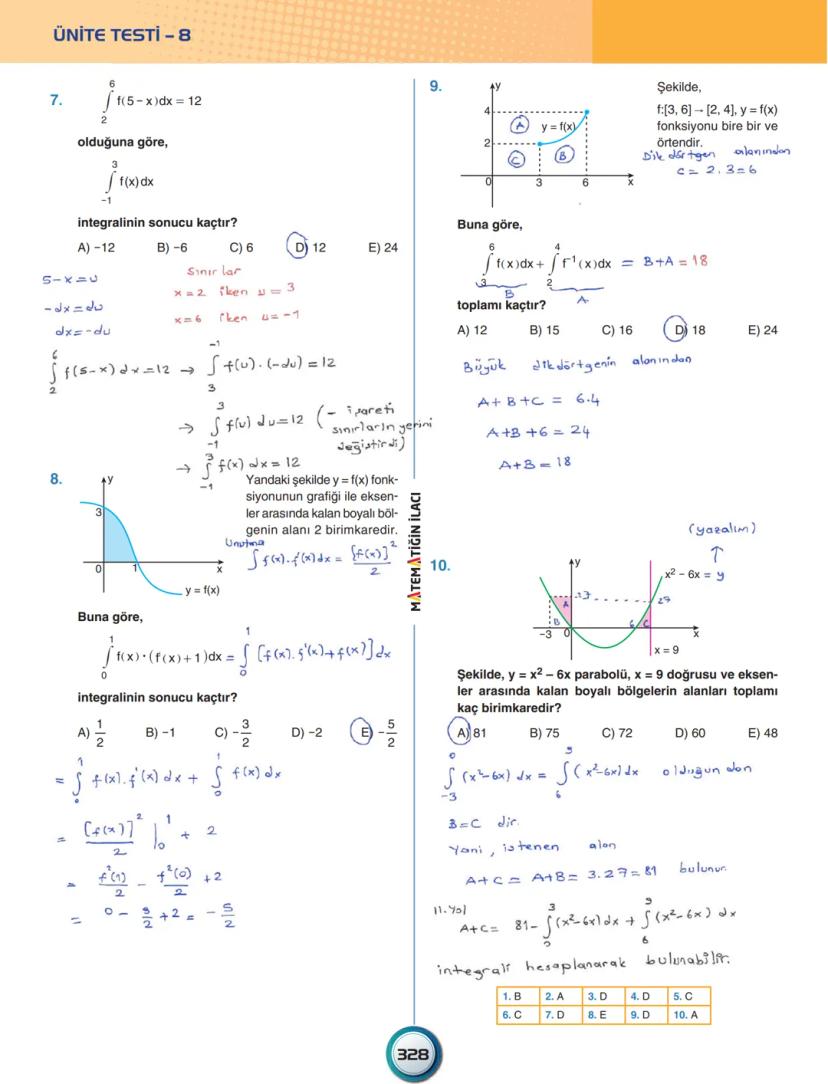 ÜNİTE TESTİ – 8
7. ∫₂⁶ f(5 – x)dx = 12
olduğuna göre,
∫₋₁³ f(x)dx
integralinin sonucu kaçtır?
A) –12 B) –6 C) 6 D) 12 E) 24
5-x=u
-dx=du
dx=-du
Sınırlar
x=2 iken u=3
x=6 iken u=-1
∫₂⁶ f(5-x)dx=12 → ∫₃⁻¹ f(u).(-du)=12
→ ∫₋₁³ f(u)du=12 (- işareti
sınırların yerini
değiştirdi)
→ ∫₋₁³ f(x)dx=12
8.
y
3
0 1 x
y = f(x)
Yandaki şekilde y = f(x) fonk-
siyonunun grafiği ile eksen-
ler arasında kalan boyalı böl-
genin alanı 2 birimkaredir.
Unutma
∫f(x).f'(x)dx = [f(x)]²/2
Buna göre,
∫₀¹ f'(x)·(f(x)+1)dx = ∫₀¹ [f(x).f'(x)+f(x)]dx
integralinin sonucu kaçtır?
A) 1/2 B) –1 C) –3/2 D) –2 E) –5/2
= ∫₀¹ f(x).f'(x)dx + ∫₀¹ f(x)dx
= [f(x)]²/2 |₀¹ + 2
= f²(1)/2 - f²(0)/2 +2
= 0 - 9/2 +2 = -5/2
MATEMATİĞİN İLACI
9.
y
4
A
y = f(x)
2
C B
0 3 6 x
Şekilde,
f:[3, 6] → [2, 4], y = f(x)
fonksiyonu bire bir ve
örtendir.
Dikdörtgen alanından
C=2.3=6
Buna göre,
∫₃⁶ f(x)dx + ∫₂⁴ f⁻¹(x)dx = B+A=18
B A
toplamı kaçtır?
A) 12 B) 15 C) 16 D) 18 E) 24
Büyük dikdörtgenin alanından
A+B+C = 6.4
A+B+6=24
A+B=18
(yazalım)
↑
10.
y
x² – 6x = y
27
27
A
B 6 C
–3 0 x
x = 9
Şekilde, y = x² – 6x parabolü, x = 9 doğrusu ve eksen-
ler arasında kalan boyalı bölgelerin alanları toplamı
kaç birimkaredir?
A) 81 B) 75 C) 72 D) 60 E) 48
∫₋₃⁰ (x²-6x)dx = ∫₆⁹ (x²-6x)dx olduğundan
B=C dir.
Yani, istenen alan
A+C = A+B = 3.27=81 bulunur.
II. Yol
A+C= 81-∫₀³(x²-6x)dx + ∫₆⁹(x²-6x)dx
integrali hesaplanarak bulunabilir.
1. B 2. A 3. D 4. D 5. C
6. C 7. D 8. E 9. D 10. A
328